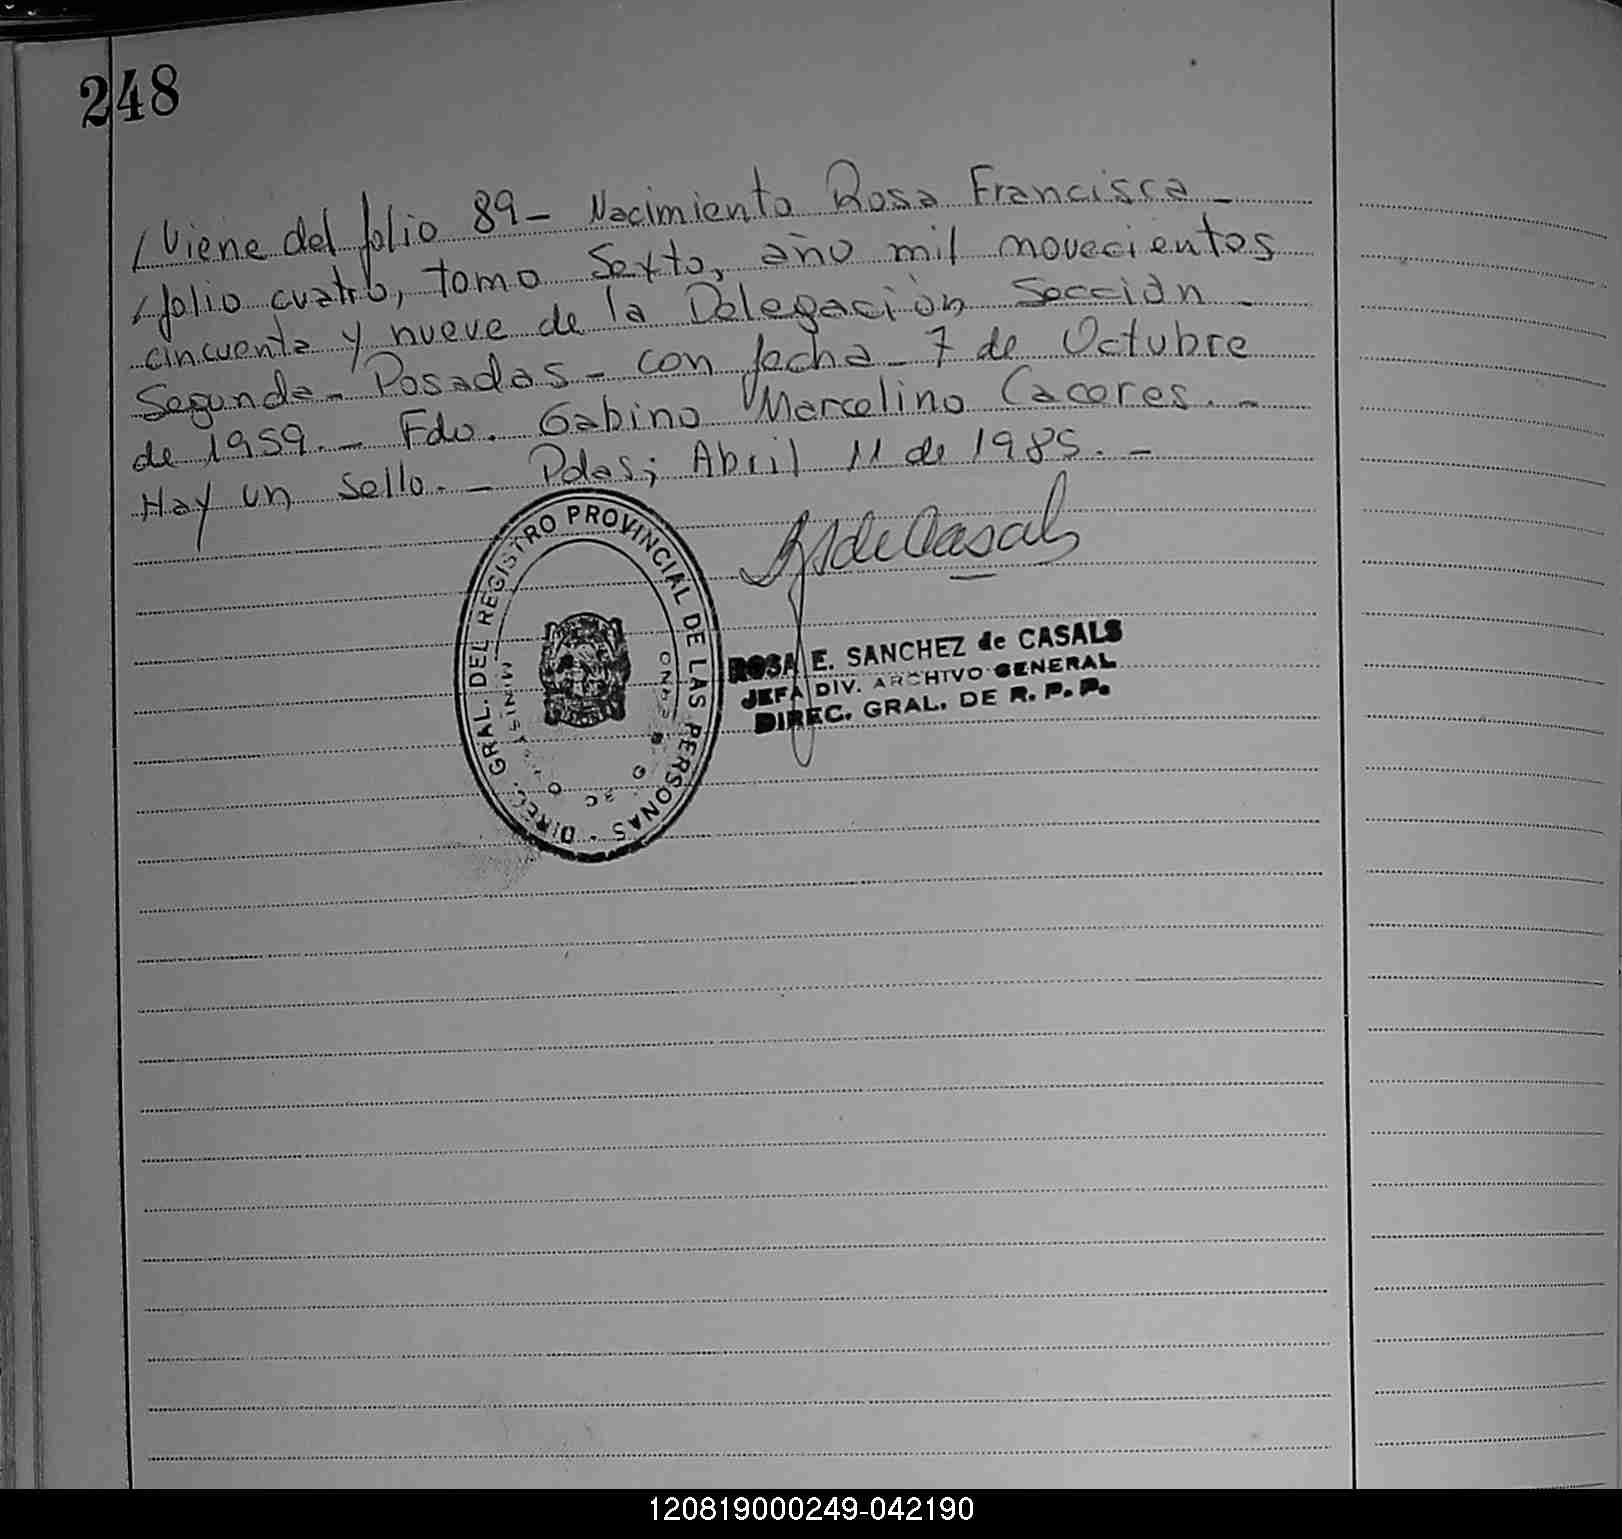 248
/Viene del folio 89 - Nacimiento Rosa Francisca -
/folio cuatro, tomo Sexto, año mil novecientos
cincuenta y nueve de la Delegación Sección -
Segunda - Posadas - con fecha - 7 de Octubre
de 1959. - Fdo. Gabino Marcelino Caceres. -
Hay un sello. - Pdas; Abril 11 de 1985. -
DIREC. GRAL. DEL REGISTRO PROVINCIAL DE LAS PERSONAS
de Casals
ROSA E. SANCHEZ de CASALS
JEFA DIV. ARCHIVO GENERAL
DIREC. GRAL. DE R. P. P.
120819000249-042190